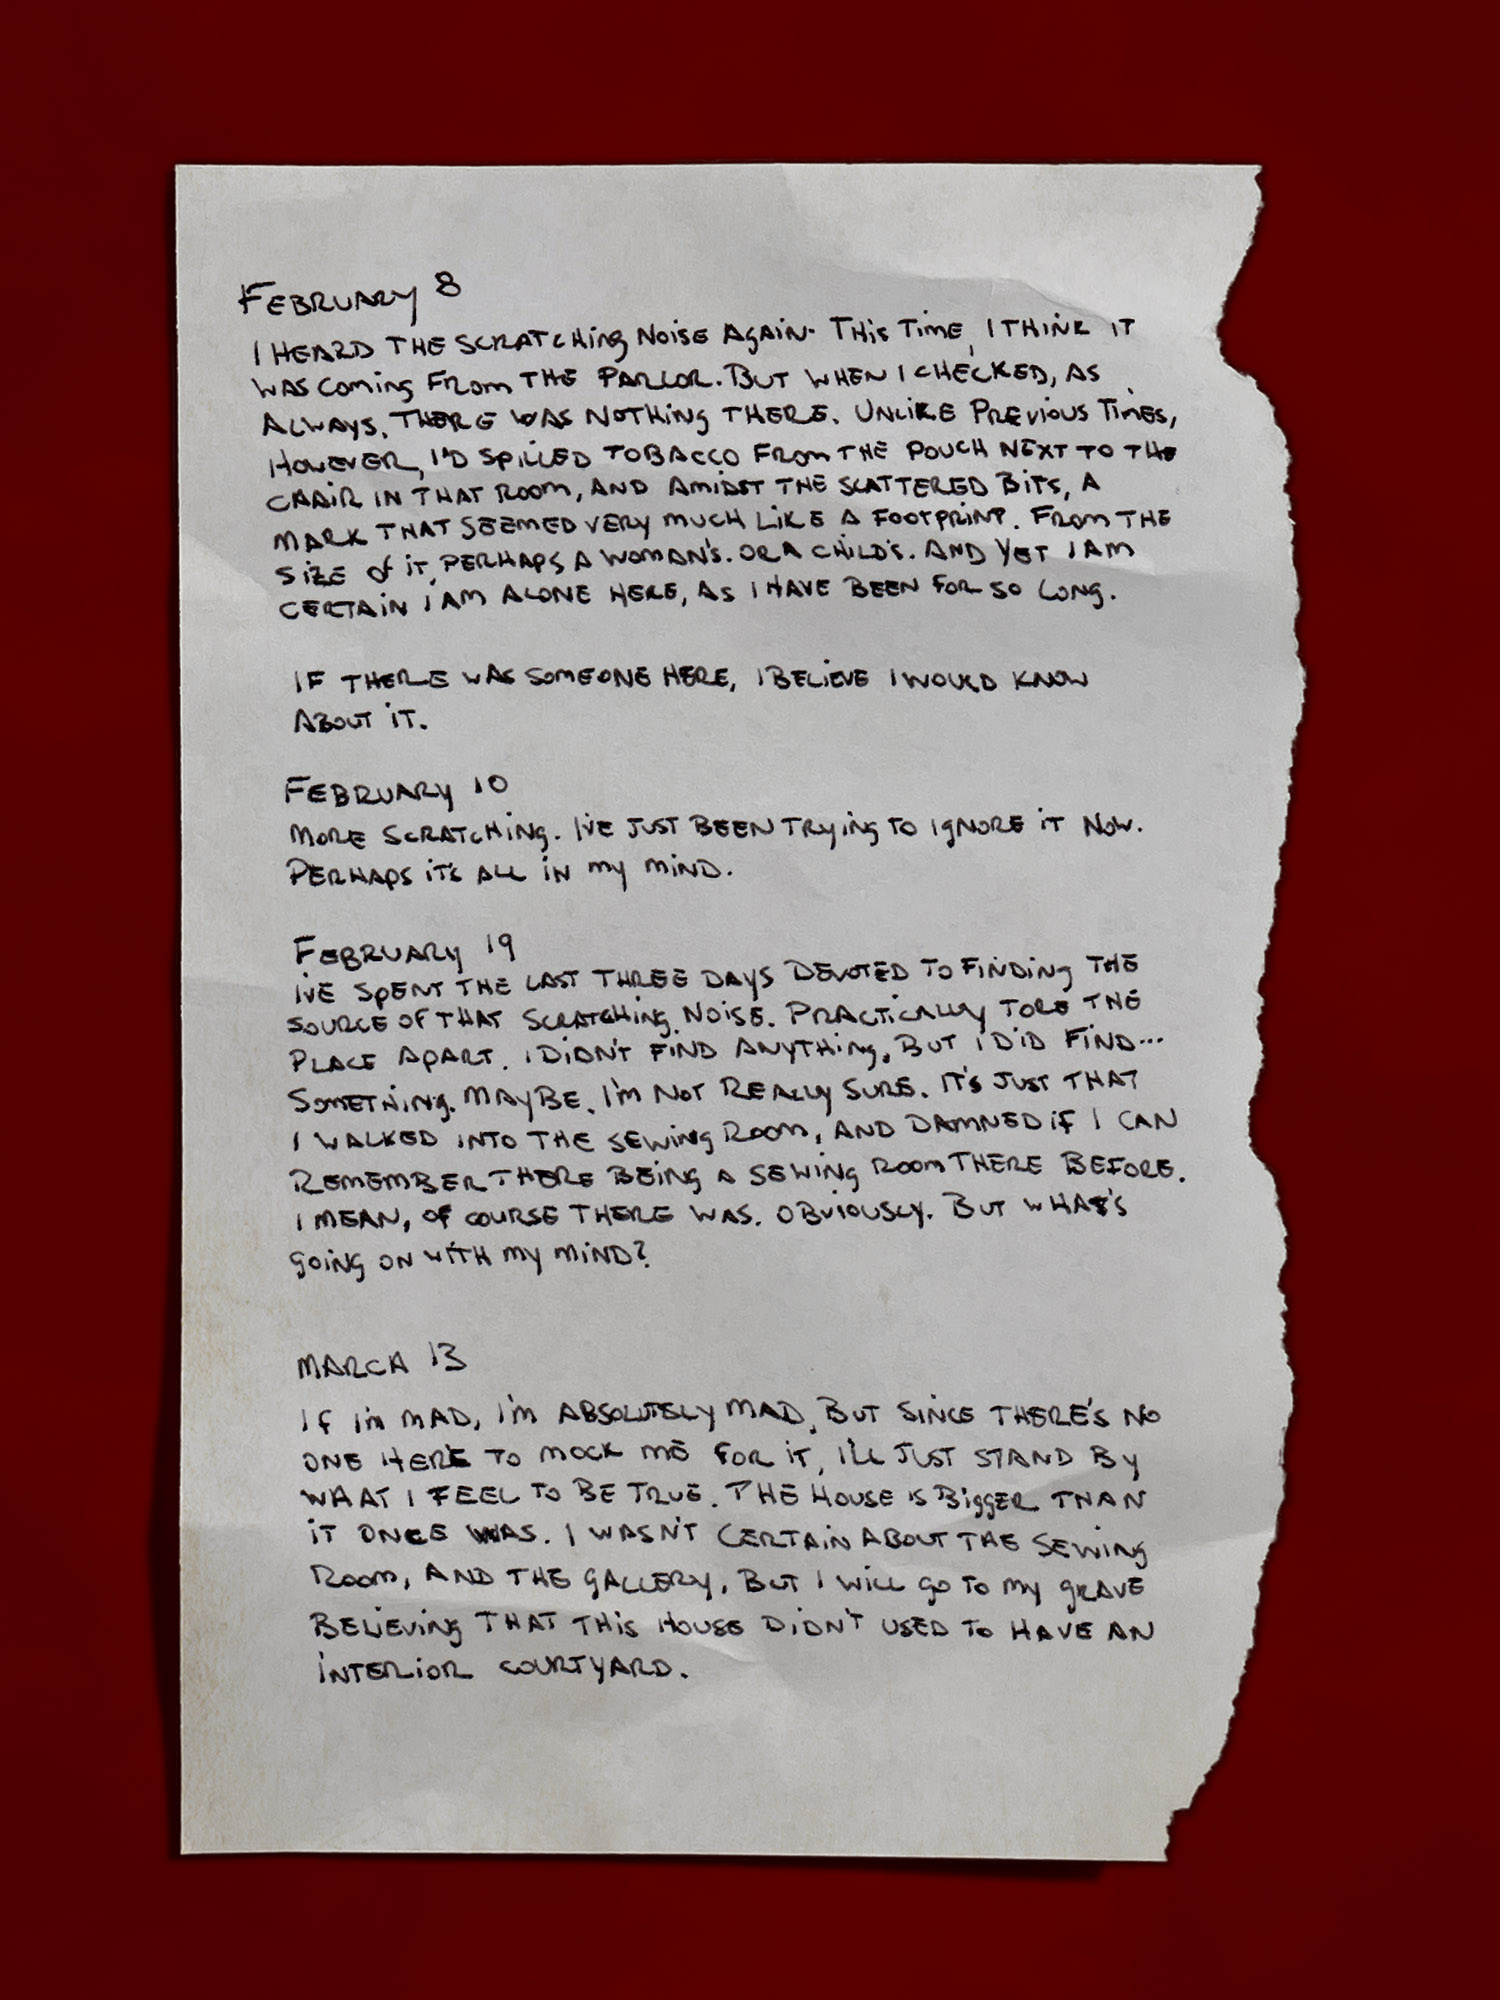 February 8
I heard the scratching noise again. This time, I think it
was coming from the parlor. But when I checked, as
always, there was nothing there. Unlike previous times,
however, I'd spilled tobacco from the pouch next to the
chair in that room, and amidst the scattered bits, a
mark that seemed very much like a footprint. From the
size of it, perhaps a woman's. Or a child's. And yet I am
certain I am alone here, as I have been for so long.
If there was someone here, I believe I would know
about it.
February 10
More scratching. I've just been trying to ignore it now.
Perhaps it's all in my mind.
February 19
I've spent the last three days devoted to finding the
source of that scratching noise. Practically tore the
place apart. I didn't find anything, but I did find...
something. Maybe. I'm not really sure. It's just that
I walked into the sewing room, and damned if I can
remember there being a sewing room there before.
I mean, of course there was. Obviously. But what's
going on with my mind?
March 13
If I'm mad, I'm absolutely mad, but since there's no
one here to mock me for it, I'll just stand by
what I feel to be true. The house is bigger than
it once was. I wasn't certain about the sewing
room, and the gallery, but I will go to my grave
believing that this house didn't used to have an
interior courtyard.